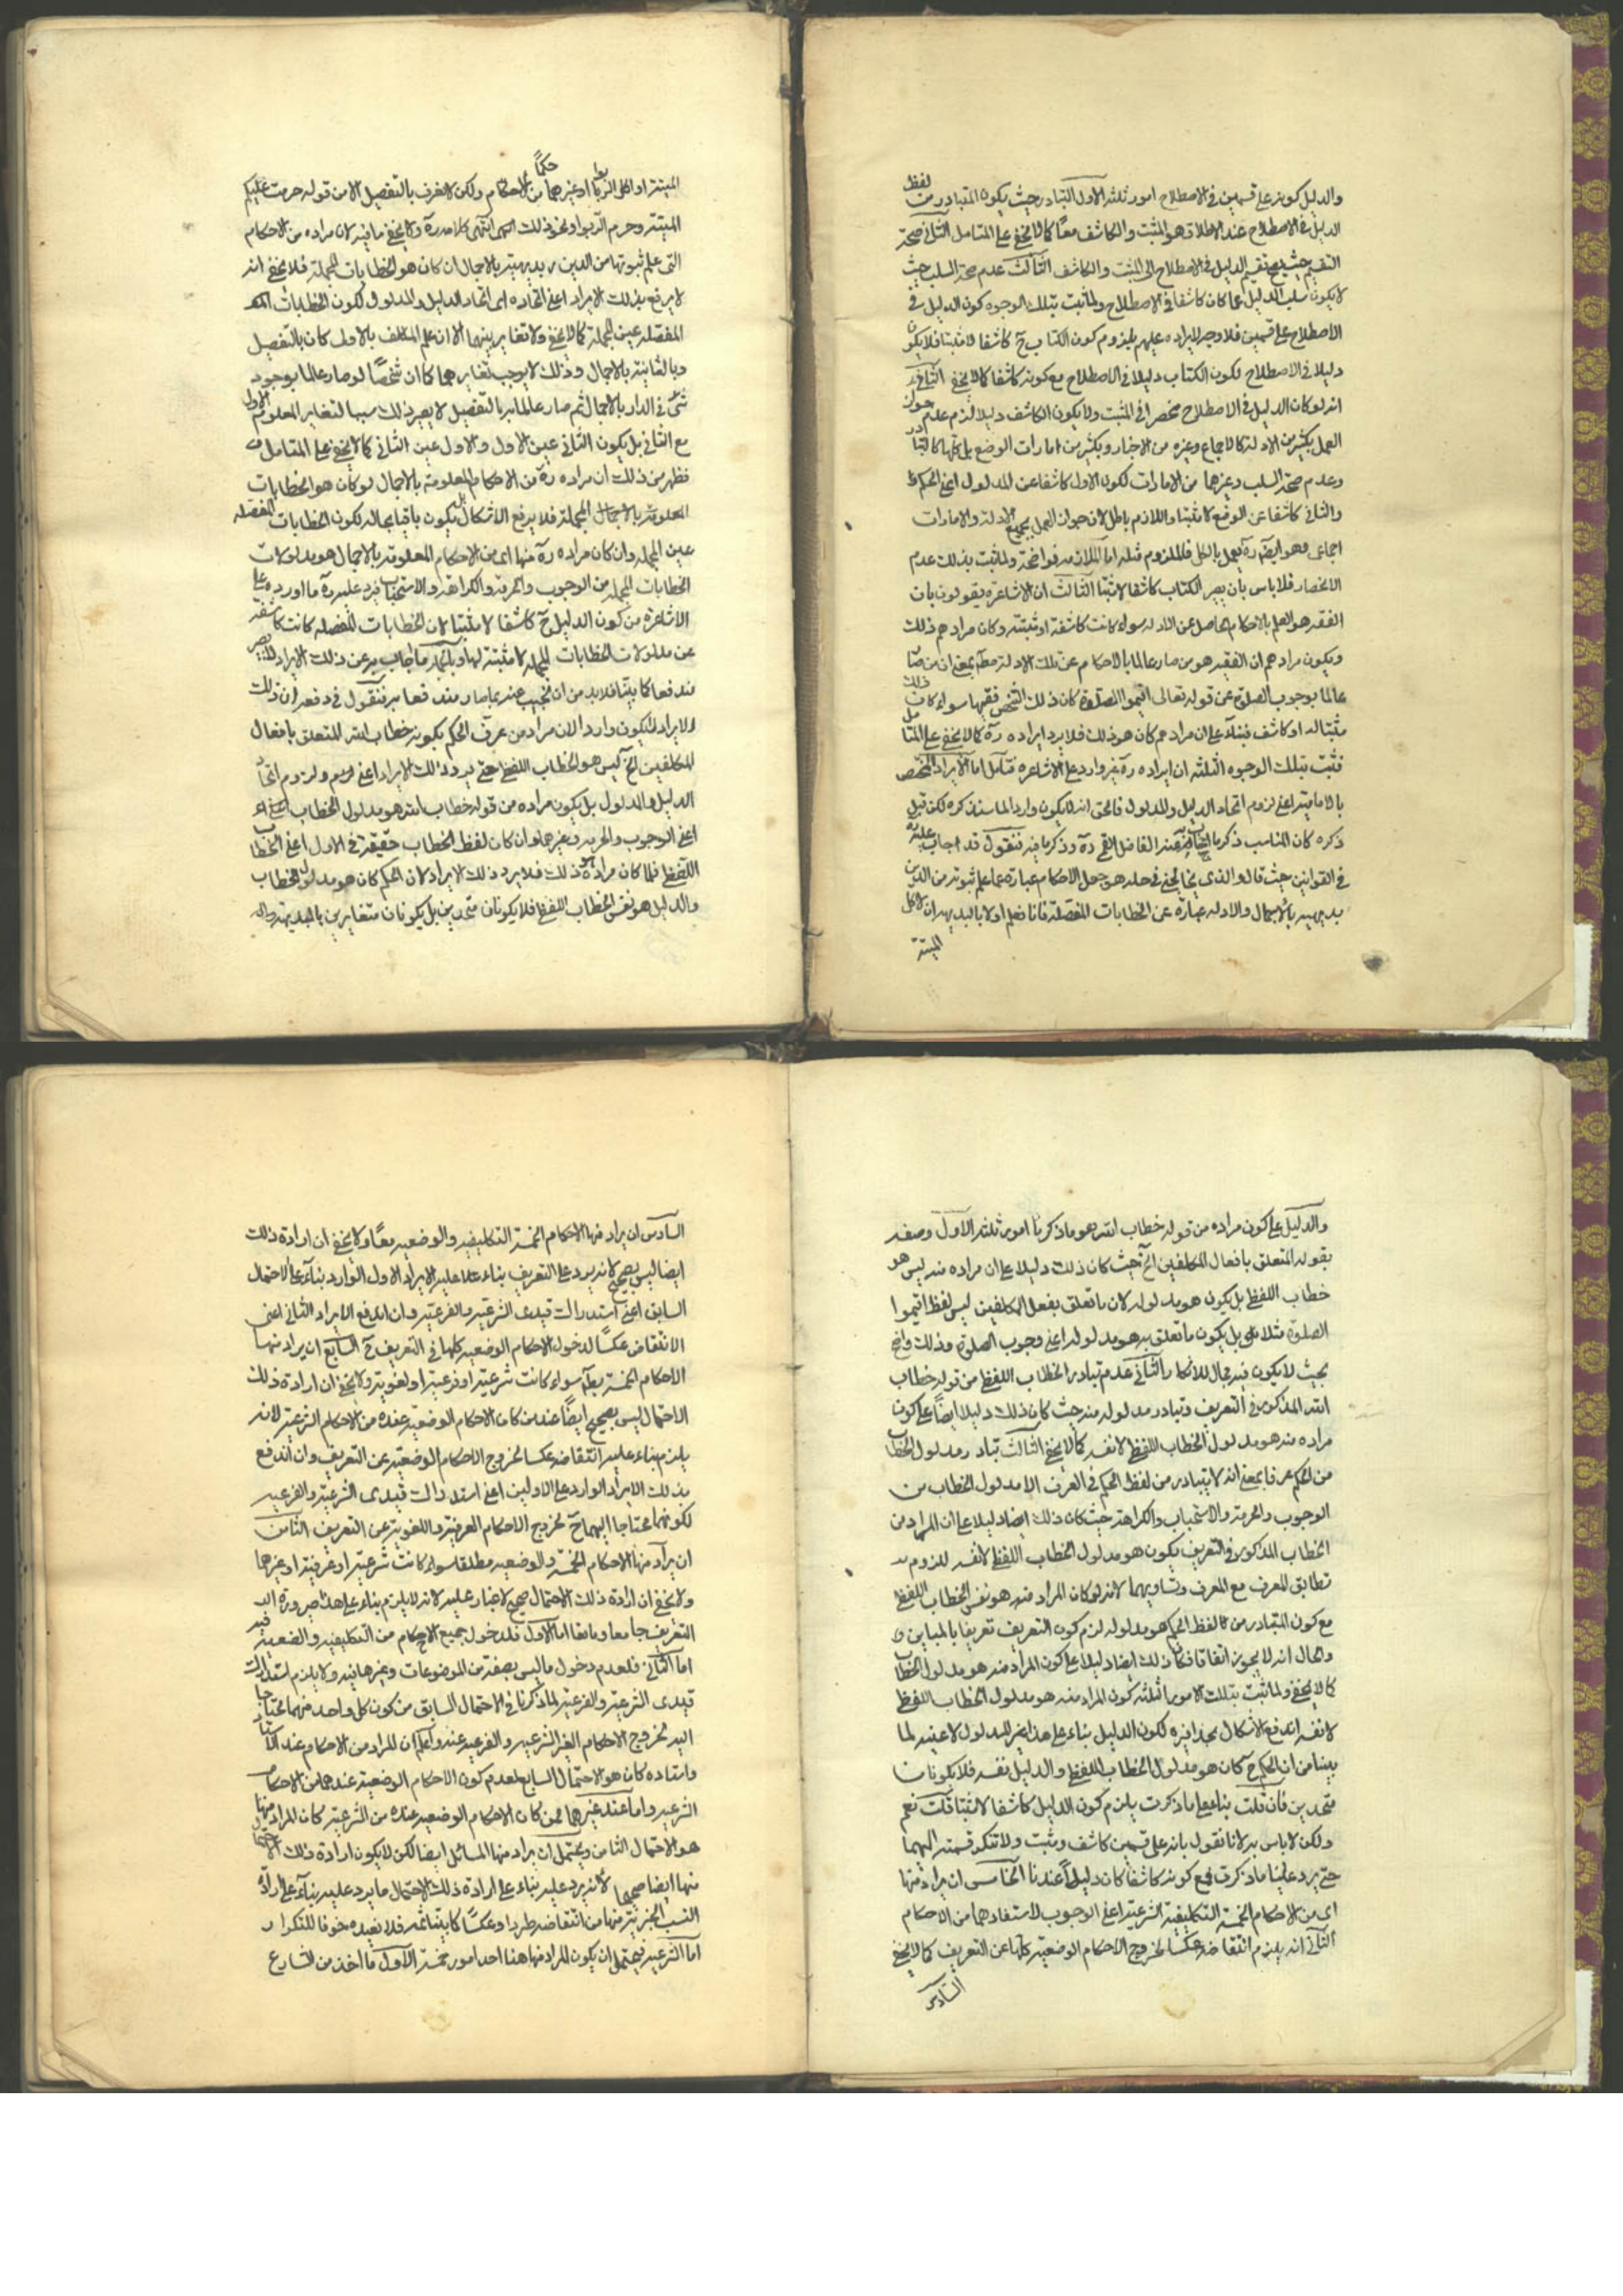 والدليل كونه على قسمين في الاصطلاح امور ثلثه الاول التبادر حيث يكون المتبادر من لفظ
الدليل في الاصطلاح عند الاطلاق هو المثبت والكاشف معًا كما لا يخفى على المتامل الثاني صحة
التقسيم حيث يصح تقسيم الدليل في الاصطلاح الى المثبت والكاشف الثالث عدم صحة السلب حيث
لا يكون سلب الدليل عما كان كاشفا في الاصطلاح ولما ثبت بتلك الوجوه كون الدليل في
الاصطلاح على قسمين فلا وجه لايراده عليهم بلزوم كون الكتاب ح كاشفا لا مثبتا فلا يكون
دليلا في الاصطلاح لكون الكتاب دليلا في الاصطلاح مع كونه كاشفا كما لا يخفى الثاني
انه لو كان الدليل في الاصطلاح منحصرا في المثبت ولا يكون الكاشف دليلا لزم عدم جواز
العمل بكثير من الادلة كالاجماع وغيره من الاخبار وبكثير من امارات الوضع بل كلها كالتبادر
وعدم صحة السلب وغيرهما من الامارات لكون الاول كاشفا عن المدلول اعني الحكم
والثاني كاشفا عن الوضع لا مثبتا واللازم باطل لان جواز العمل بجميع الادلة والامارات
اجماعي وهو ايضا ره يعمل بالكل فالملزوم مثله اما الملازمة فواضحة ولما ثبت بذلك عدم
الانحصار فلا باس بان يصير الكتاب كاشفا لا مثبتا الثالث ان الاشاعرة يقولون بان
الفقه هو العلم بالاحكام الحاصل عن الادلة سواء كانت كاشفة او مثبتة وكان مرادهم ذلك
ويكون مرادهم ان الفقيه هو من صار عالما بالاحكام عن تلك الادلة مطلقا بمعنى ان من صار
عالما بوجوب الصلوة عن قوله تعالى اقيموا الصلوة كان ذلك الشخص فقيها سواء كان ذلك
مثبتا له او كاشف فبناء على ان مرادهم كان هو ذلك فلا يرد ايراده ره كما لا يخفى على المتامل
فثبت بتلك الوجوه الثلثة ان ايراده ره غير وارد على الاشاعرة فتامل اما الايراد المختص
بالامامية اعني لزوم اتحاد الدليل والمدلول فالحق انه لا يكون واردا لما سنذكره لكن قبل
ذكره كان المناسب ذكر ما اجاب عنه الفاضل القمي ره وذكر ما فيه فنقول قد اجاب عنه
في القوانين حيث قال والذي يخالجني في حله هو جعل الاحكام عبارة عما علم ثبوته من الدين
بديهية بالاجمال والادلة عبارة عن الخطابات المفصلة فانا نعلم اولا بالبديهة ان لاكل
الميتة
الميتة او اكل الربا وغيرهما حكمًا من الاحكام ولكن لا نعرف بالتفصيل الا من قوله حرمت عليكم
الميتة وحرم الربوا ونحو ذلك انتهى كلامه ره ولا يخفى ما فيه لان مراده من الاحكام
التي علم ثبوتها من الدين بديهية بالاجمال ان كان هو الخطابات المجملة فلا يخفى انه
لا يرفع بذلك الايراد اعني اتحاده اى اتحاد الدليل والمدلول لكون الخطابات
المفصلة عين المجملة كما لا يخفى ولا تغاير بينهما الا ان علم المكلف بالاولى كان بالتفصيل
وبالثانية بالاجمال وذلك لا يوجب تغايرهما كما ان شخصًا لو صار عالما بوجود
شئ في الدار بالاجمال ثم صار عالما به بالتفصيل لا يصير ذلك سببا لتغاير المعلوم الاول
مع الثاني بل يكون الثاني عين الاول والاول عين الثاني كما لا يخفى على المتامل
فظهر من ذلك ان مراده ره من الاحكام المعلومة بالاجمال لو كان هو الخطابات
المعلومة بالاجمال المجملة فلا يرفع الاشكال بل يكون باقيا بحاله لكون الخطابات المفصلة
عين المجملة وان كان مراده ره منها اى من الاحكام المعلومة بالاجمال هو مدلولات
الخطابات المجملة من الوجوب والحرمة والكراهة والاستحباب فيرد عليه ره ما اورده على
الاشاعرة من كون الدليل ح كاشفا لا مثبتا لان الخطابات المفصلة كانت كاشفة
عن مدلولات الخطابات المجملة لا مثبتة لها وبالجملة ما اجاب به عن ذلك الايراد لا يصير
مندفعا كما بينا فلا بد من ان نجيب عنه بما صار مندفعا به فنقول في دفعه ان ذلك
الايراد لا يكون واردا لان مراد من عرف الحكم بكونه خطاب الله المتعلق بافعال
المكلفين الخ ليس هو الخطاب اللفظي حتى يرد ذلك الايراد اعني لزوم اتحاد
الدليل والمدلول بل يكون مراده من قوله خطاب الله هو مدلول الخطاب
اعني الوجوب والحرمة وغيرهما وان كان لفظ الخطاب حقيقة في الاول اعني الخطاب
اللفظي فلما كان مراده هو ذلك فلا يرد ذلك الايراد لان الحكم كان هو مدلول الخطاب
والدليل هو نفس الخطاب اللفظي فلا يكونان متحدين بل يكونان متغايرين بالبديهة
والدليل على كون مراده من قوله خطاب الله هو ما ذكرنا امور ثلثة الاول وصفه
بقوله المتعلق بافعال المكلفين الخ حيث كان ذلك دليلا على ان مراده منه ليس هو
خطاب اللفظي بل يكون هو مدلوله لان ما تعلق بفعل المكلفين ليس لفظ اقيموا
الصلوة مثلا بل يكون ما تعلق به هو مدلوله اعني وجوب الصلوة وذلك واضح
بحيث لا يكون فيه مجال للانكار والثاني عدم تبادر الخطاب اللفظي من قوله خطاب
الله المذكور في التعريف وتبادر مدلوله منه حيث كان ذلك دليلا ايضًا على كون
مراده منه هو مدلول الخطاب اللفظي لا نفسه كما لا يخفى الثالث تبادر مدلول الخطاب
من الحكم عرفا بمعنى انه لا يتبادر من لفظ الحكم في العرف الا مدلول الخطاب من
الوجوب والحرمة والاستحباب والكراهة حيث كان ذلك ايضا دليلا على ان المراد من
الخطاب المذكور في التعريف يكون هو مدلول الخطاب اللفظي لا نفسه للزوم
تطابق المعرف مع المعرف وتساويهما لانه لو كان المراد منه هو نفس الخطاب اللفظي
مع كون المتبادر من لفظ الحكم هو مدلوله لزم كون التعريف تعريفا بالمباين و
والحال انه لا يجوز اتفاقا فكان ذلك ايضا دليلا على كون المراد منه هو مدلول الخطاب
كما لا يخفى ولما ثبت بتلك الامور الثلثة كون المراد منه هو مدلول الخطاب اللفظي
لا نفسه اندفع الاشكال بحذافيره لكون الدليل بناء على هذا غير المدلول لا عينه لما
بينا من ان الحكم ح كان هو مدلول الخطاب اللفظي والدليل نفسه فلا يكونان
متحدين فان قلت بناء على ما ذكرت يلزم كون الدليل كاشفا لا مثبتا قلت نعم
ولكن لا باس به لانا نقول بانه على قسمين كاشف ومثبت ولا ننكر قسمته اليهما
حتى يرد علينا ما ذكرت فمع كونه كاشفا كان دليلًا عندنا الخامس ان يراد منها
اى من الاحكام الخمسة التكليفية الشرعية اعني الوجوب
الثاني انه يلزم انتقاضه عكسا لخروج الاحكام الوضعية كلها عن التعريف كما لا يخفى
السادس
السادس ان يراد منها الاحكام الخمسة التكليفية والوضعية معًا ولا يخفى ان ارادة ذلك
ايضا ليس بصحيح لانه يرد على التعريف بناء عليه الايراد الاول الوارد بناء على الاحتمال
السابق اعني استدراك قيدى الشرعية والفرعية وان اندفع الايراد الثاني اعني
الانتقاض عكسًا لدخول الاحكام الوضعية كلها في التعريف ح السابع ان يراد منها
الاحكام الخمسة مطلقا سواء كانت شرعية او فرعية او لغوية ولا يخفى ان ارادة ذلك
الاحتمال ليس بصحيح ايضًا عند من كان الاحكام الوضعية عنده من الاحكام الشرعية لانه
يلزم بناء عليه انتقاضه عكسا لخروج الاحكام الوضعية عن التعريف وان اندفع
بذلك الايراد الوارد على الاولين اعني استدراك قيدى الشرعية والفرعية
لكونهما محتاجا اليهما ح لخروج الاحكام العرفية واللغوية عن التعريف الثامن
ان يراد منها الاحكام الخمسة والوضعية مطلقا سواء كانت شرعية او عرفية او غيرها
ولا يخفى ان ارادة ذلك الاحتمال صحيح لا غبار عليه لانه لا يلزم بناء على هذا صيرورة
التعريف جامعا ومانعا اما الاول فلدخول جميع الاحكام من التكليفية والوضعية فيه
اما الثاني فلعدم دخول ما ليس بصفته من الموضوعات وغيرها فيه ولا يلزم استدراك
قيدى الشرعية والفرعية لما ذكرنا في الاحتمال السابق من كون كل واحد منهما محتاجا
اليه لخروج الاحكام الغير الشرعية والفرعية عنه واعلم ان المراد من الاحكام عند
واستاده كان هو الاحتمال السابع لعدم كون الاحكام الوضعية عندهما من الاحكام
الشرعية واما عند غيرهما ممن كان الاحكام الوضعية عنده من الشرعية كان المراد منها
هو الاحتمال الثامن ويحتمل ان يراد منها المسائل ايضا لكن لا يكون ارادة ذلك الاحتمال
منها ايضا صحيحا لانه يرد عليه بناء على ارادة ذلك الاحتمال ما يرد عليه بناء على ارادة
النسب الخبرية منها من انتقاضه طردا وعكسًا كما بينا ثمه فلا نعيده خوفا للتكرار
اما الشرعية فيحتمل ان يكون المراد منها هنا احد امور خمسة الاول ما اخذ من الشارع